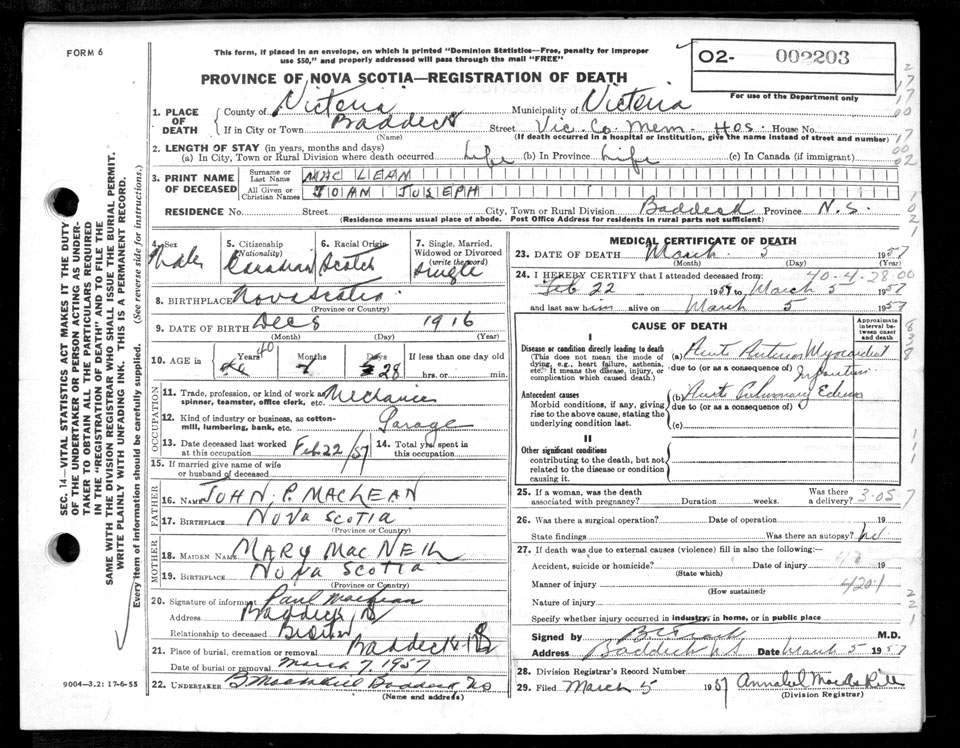 FORM 6
This form, if placed in an envelope, on which is printed "Dominion Statistics—Free, penalty for improper
use $50," and properly addressed will pass through the mail "FREE"
O2- 002203
For use of the Department only
PROVINCE OF NOVA SCOTIA—REGISTRATION OF DEATH
SEC. 14—VITAL STATISTICS ACT MAKES IT THE DUTY
OF THE UNDERTAKER OR PERSON ACTING AS UNDER-
TAKER TO OBTAIN ALL THE PARTICULARS REQUIRED
IN THE "REGISTRATION OF DEATH" AND TO FILE THE
SAME WITH THE DIVISION REGISTRAR WHO SHALL ISSUE THE BURIAL PERMIT.
WRITE PLAINLY WITH UNFADING INK. THIS IS A PERMANENT RECORD.
Every item of information should be carefully supplied. (See reverse side for instructions).
1. PLACE OF DEATH
County of Victoria Municipality of Victoria
If in City or Town Baddeck Street Vic. Co. Mem. Hos. House No.
(Name) (If death occurred in a hospital or institution, give the name instead of street and number)
2. LENGTH OF STAY (in years, months and days)
(a) In City, Town or Rural Division where death occurred Life (b) In Province Life (c) In Canada (if immigrant)
3. PRINT NAME OF DECEASED
Surname or Last Name MAC LEAN
All Given or Christian Names JOHN JOSEPH
RESIDENCE No. Street City, Town or Rural Division Baddeck Province N.S.
(Residence means usual place of abode. Post Office Address for residents in rural parts not sufficient)
4. Sex Male
5. Citizenship (Nationality) Canadian
6. Racial Origin Scotch
7. Single, Married, Widowed or Divorced (write the word) Single
8. BIRTHPLACE Nova Scotia
(Province or Country)
9. DATE OF BIRTH Dec 5 1916
(Month) (Day) (Year)
10. AGE in Years 40 Months Days 28 If less than one day old
hrs. or min.
OCCUPATION
11. Trade, profession, or kind of work as spinner, teamster, office clerk, etc. Mechanic
12. Kind of industry or business, as cotton-mill, lumbering, bank, etc. Garage
13. Date deceased last worked at this occupation Feb 22/57 14. Total yrs. spent in this occupation
15. If married give name of wife or husband of deceased
FATHER
16. NAME JOHN P. MACLEAN
17. BIRTHPLACE NOVA SCOTIA
(Province or Country)
MOTHER
18. MAIDEN NAME MARY MAC NEIL
19. BIRTHPLACE NOVA SCOTIA
(Province or Country)
20. Signature of informant Paul MacLean
Address Baddeck NS
Relationship to deceased Brother
21. Place of burial, cremation or removal Baddeck NS
Date of burial or removal March 7, 1957
22. UNDERTAKER Baddeck, NS
(Name and address)
9004-3.2: 17-6-55
MEDICAL CERTIFICATE OF DEATH
23. DATE OF DEATH March 5 1957
(Month) (Day) (Year)
40-4-28-00
24. I HEREBY CERTIFY that I attended deceased from:
Feb 22 1957 to March 5 1957
and last saw him alive on March 5 1957
CAUSE OF DEATH
Approximate interval between onset and death
I
Disease or condition directly leading to death
(This does not mean the mode of dying, e.g., heart failure, asthenia, etc. It means the disease, injury, or complication which caused death.)
(a) Acute Anterior Myocardial Infarction
due to (or as a consequence of)
Antecedent causes
Morbid conditions, if any, giving rise to the above cause, stating the underlying condition last.
(b) Acute Pulmonary Edema
due to (or as a consequence of)
(c)
II
Other significant conditions
contributing to the death, but not related to the disease or condition causing it.
25. If a woman, was the death associated with pregnancy? Duration weeks. Was there a delivery? 3-05-7
26. Was there a surgical operation? Date of operation 19
State findings Was there an autopsy? No
27. If death was due to external causes (violence) fill in also the following:—
Accident, suicide or homicide? Date of injury 19
(State which)
Manner of injury 4201
(How sustained)
Nature of injury
Specify whether injury occurred in industry, in home, or in public place
Signed by M.D.
Address Baddeck NS Date March 5 1957
28. Division Registrar's Record Number
29. Filed March 5 1957
(Division Registrar)